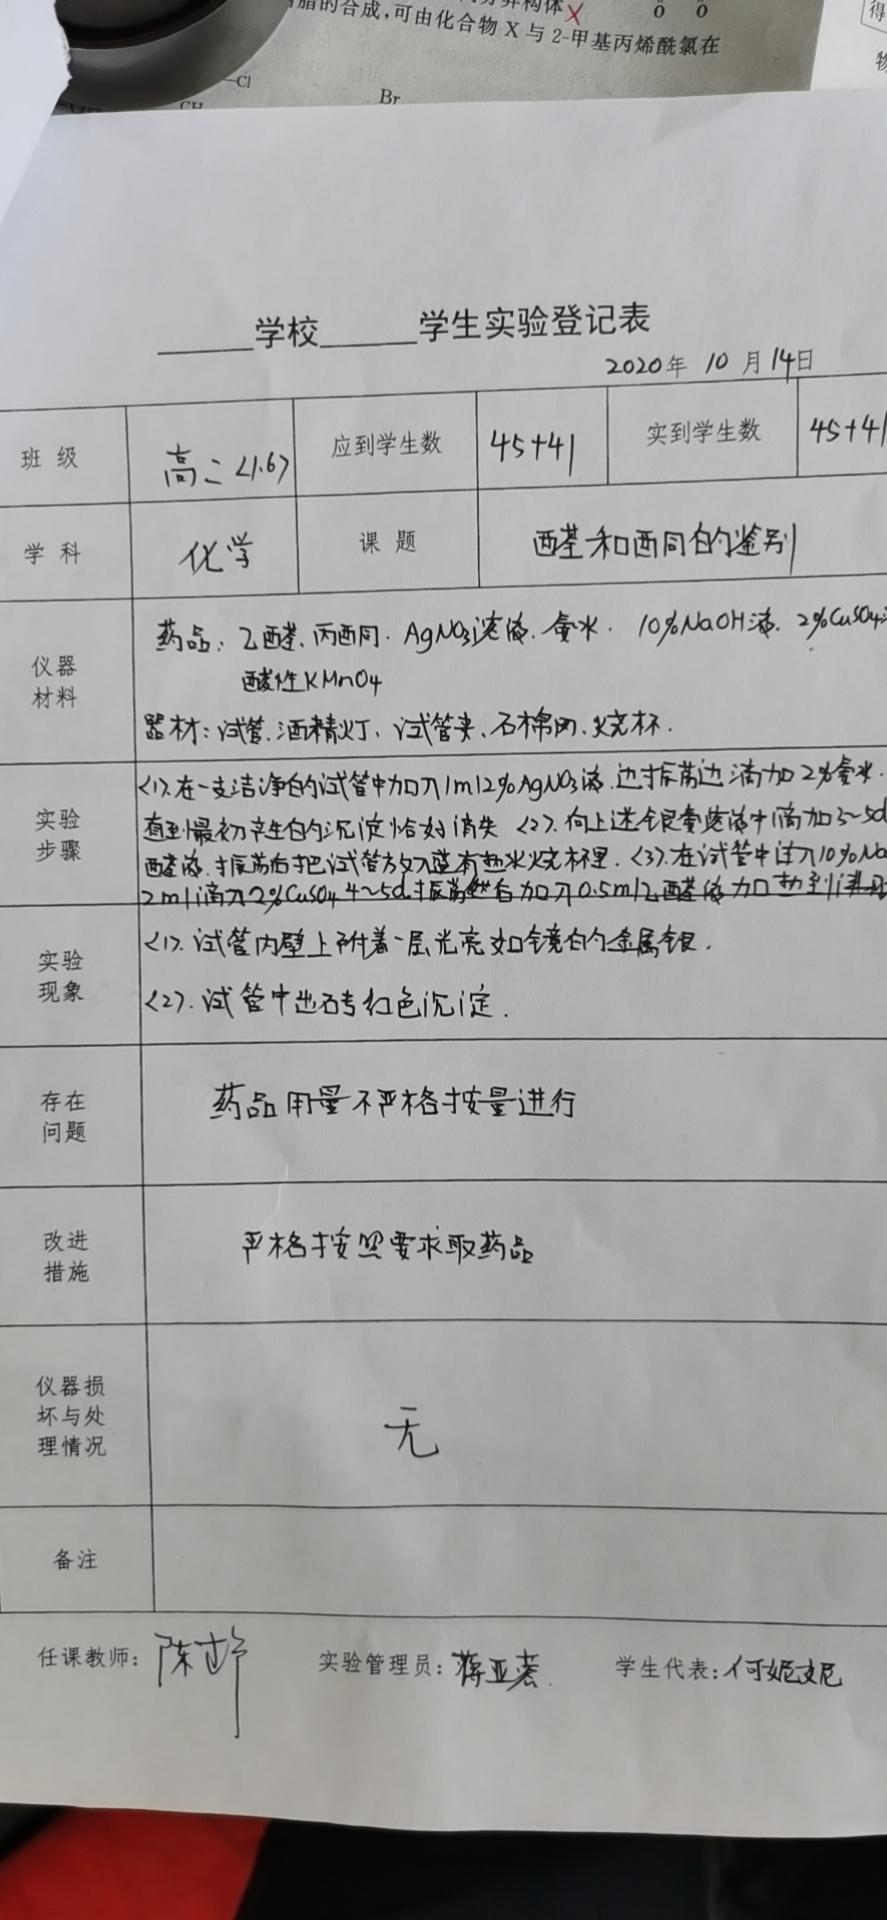 脂的合成,可由化合物X与2-甲基丙烯酰氯在
Br
______学校______学生实验登记表
2020年 10 月 14日
班 级 高二<1.6> 应到学生数 45+41 实到学生数 45+41
学 科 化学 课 题 酉荃和酉同的鉴别
仪器材料
药品: 乙醛、丙酉同. AgNO3溶液. 氨水. 10%NaOH液. 2%CuSO4
酸性KMnO4
器材: 试管、酒精灯、试管夹、石棉网、烧杯.
实验步骤
<1>.在一支洁净的试管中加入1ml2%AgNO3液.边振荡边滴加2%氨水.
直到最初产生的沉淀恰好消失 <2>.向上述银氨溶液中滴加3~5d
醛液.振荡后把试管放入盛有热水烧杯里.<3>.在试管中注入10%Na
2ml滴入2%CuSO4 4~5d.振荡然后加入0.5ml乙醛液加热到沸
实验现象
<1>.试管内壁上附着一层光亮如镜的金属银.
<2>.试管中出砖红色沉淀.
存在问题
药品用量不严格按量进行
改进措施
严格按照要求取药品
仪器损坏与处理情况
无
备注
任课教师: 陈 实验管理员: 蒋亚 学生代表: 何妮妮